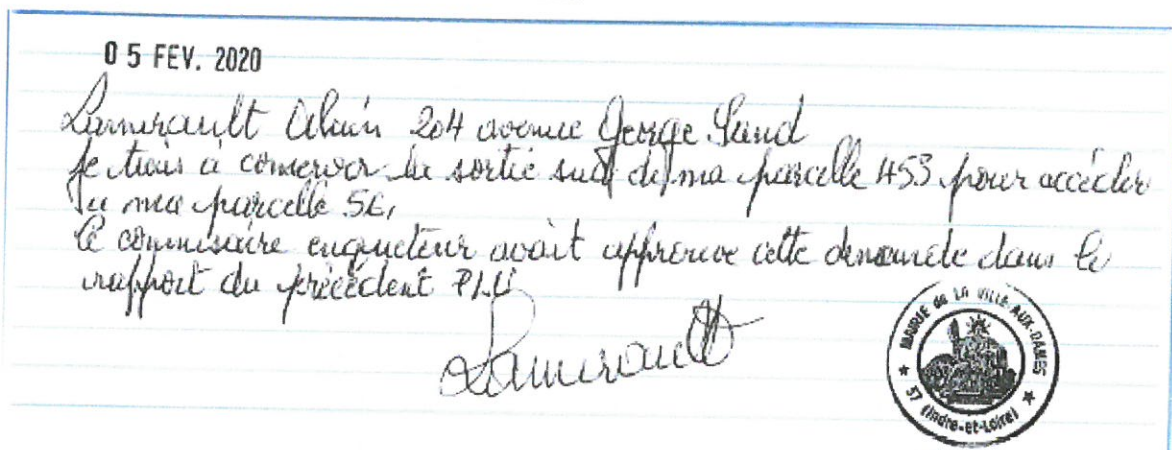 05 FEV. 2020
Lamirault Alain 204 avenue George Sand
Je tiens à conserver la sortie sud de ma parcelle 453 pour accéder
a ma parcelle 56,
le commisaire enqueteur avait approuve cette demande dans le
rapport du précédent PLU
Lamirault
MAIRIE de LA VILLE-AUX-DAMES
37 (Indre-et-Loire)